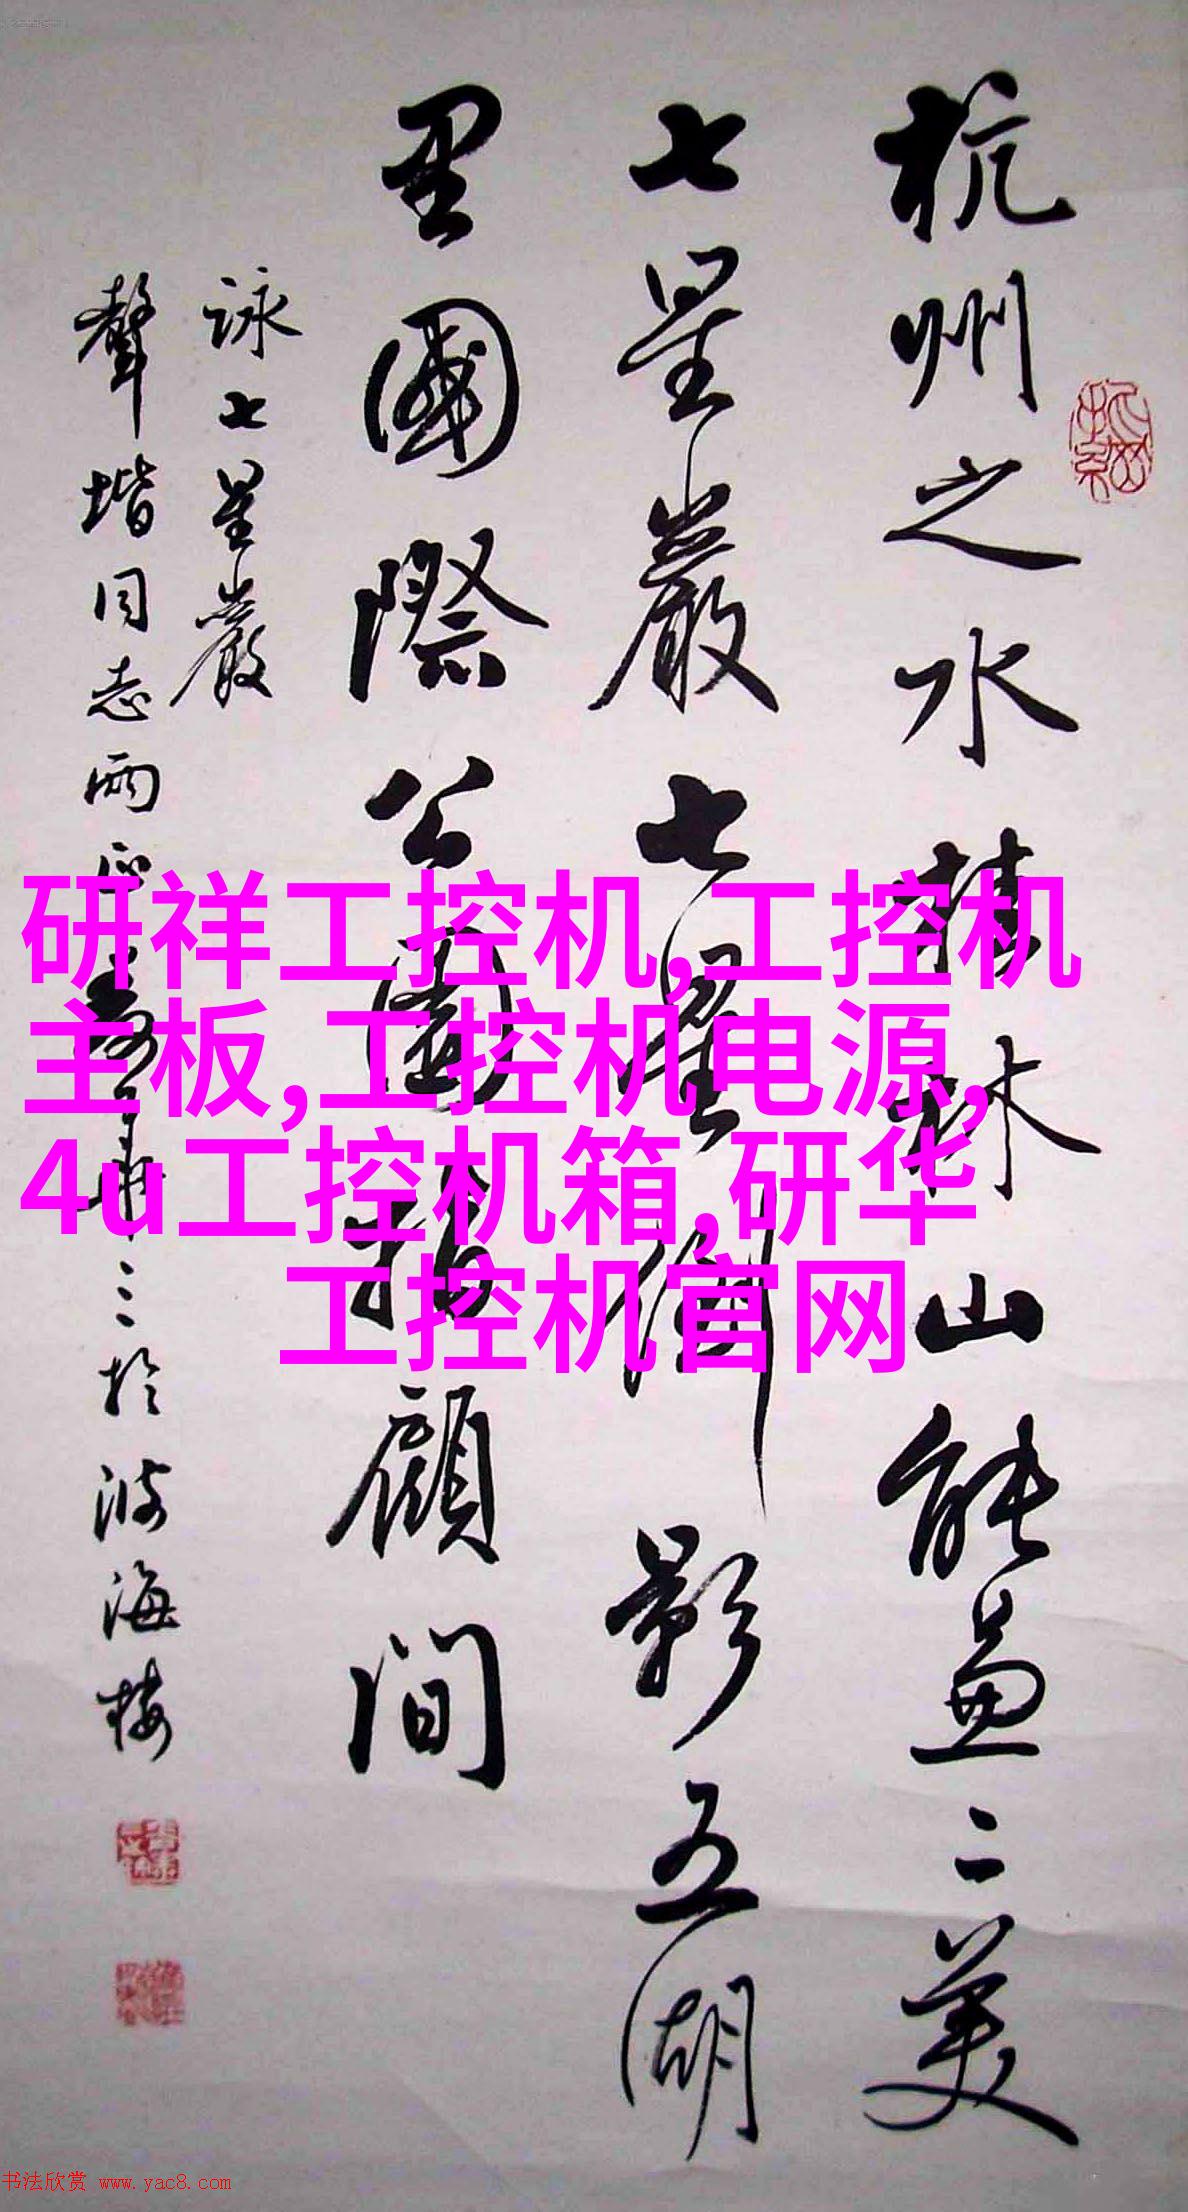 杭州之水桂林山能兼二美
七星岩七星倒影五湖
里國際公園指顧間
詠七星巖
聲堦同志雨正
三於波海楼
研祥工控机,工控机
主板,工控机电源,
4u工控机箱,研华
工控机官网
书法欣赏 www.yac8.com